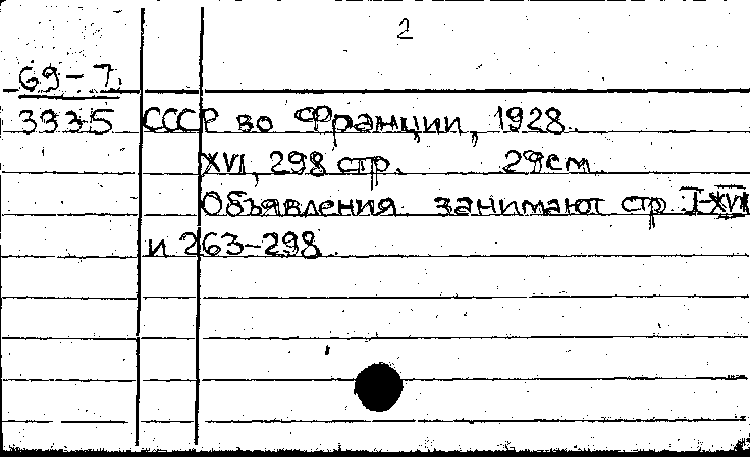 2
69-7
3935
СССР во Франции, 1928.
XVI, 298 стр. 29см
Объявления занимают стр I-XVI
и 263-298